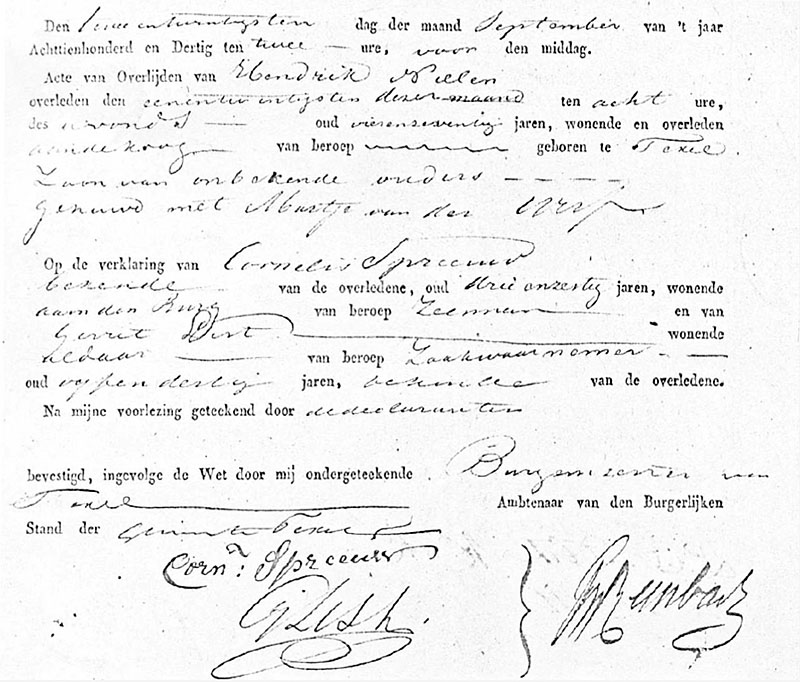 Den tweeentwintigsten dag der maand September van 't jaar
Achttienhonderd en Dertig ten twee ure, voor den middag.
Acte van Overlijden van Hendrik Nellen
overleden den eenentwintigsten dezer maand ten acht ure,
des avonds oud vierenzeventig jaren, wonende en overleden
aan de koog van beroep geboren te Texel.
Zoon van onbekende ouders
gehuwd met Maartje van der
Op de verklaring van Cornelis Spreeuw
bekende van de overledene, oud drieenzestig jaren, wonende
aan den Burg van beroep Zeeman en van
Gerrit wonende
aldaar van beroep Zaakwaarnemer
oud jaren, bekende van de overledene.
Na mijne voorlezing geteekend door de declaranten
bevestigd, ingevolge de Wet door mij ondergeteekende Burgemeester van
Texel Ambtenaar van den Burgerlijken
Stand der gemeente Texel
Corn.s: Spreeuw